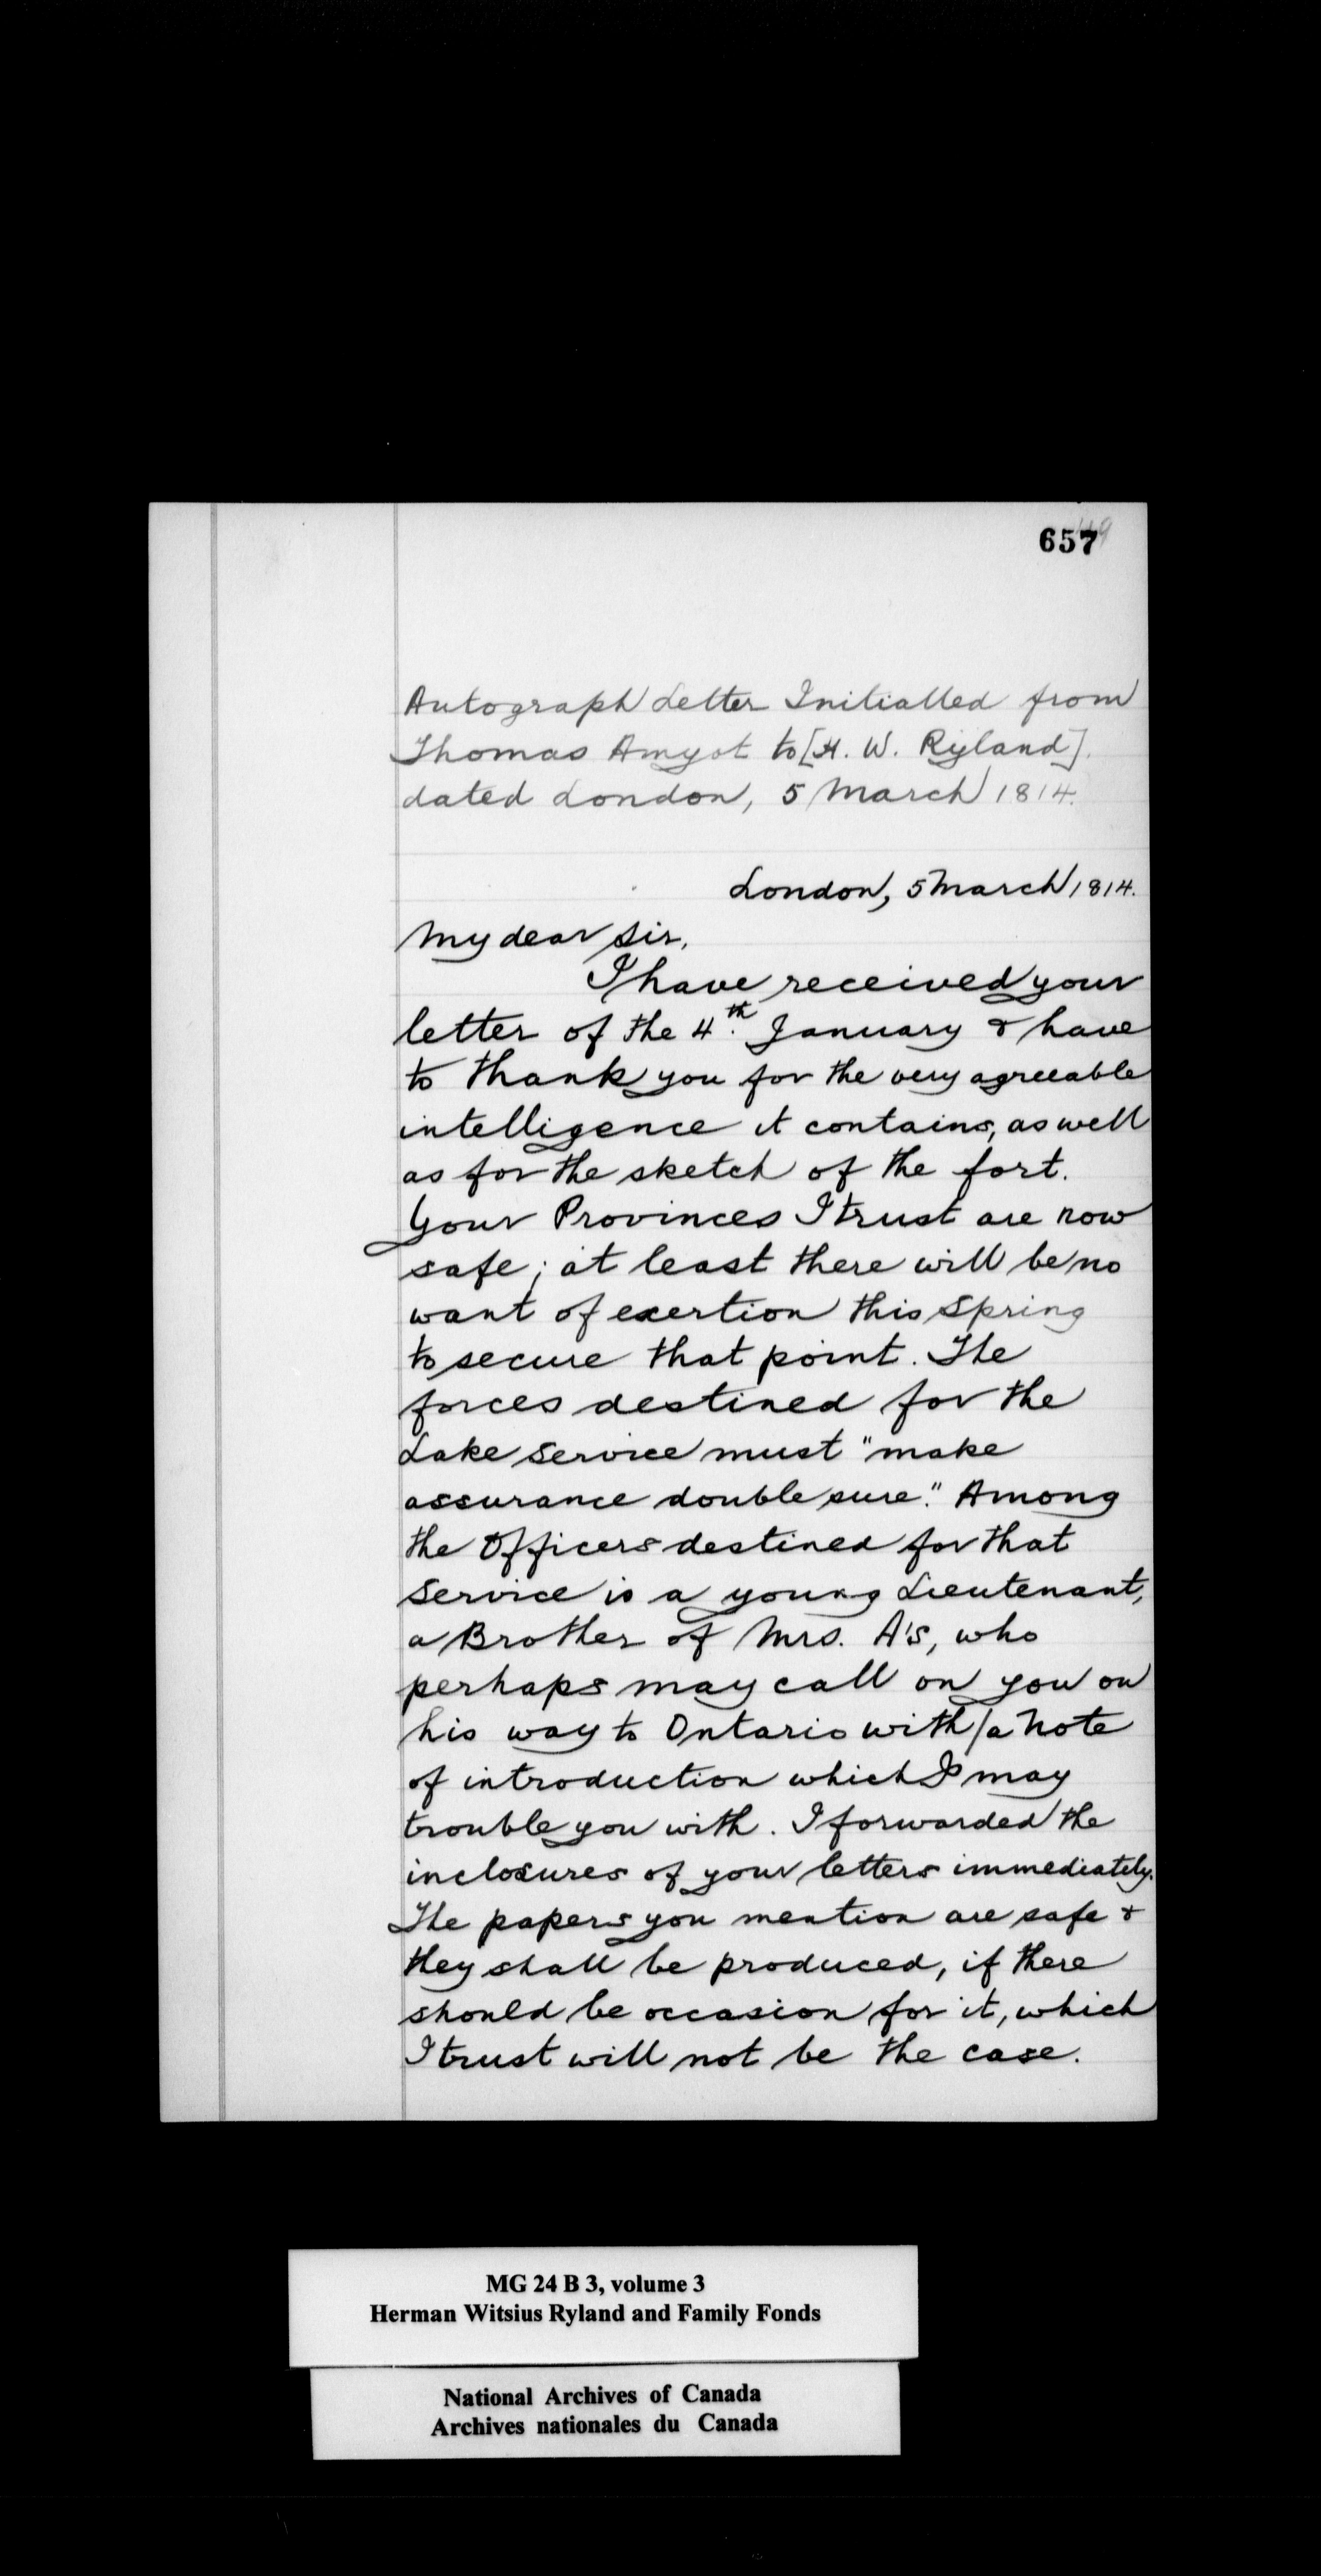 657
Autograph Letter Initialled from
Thomas Amyot to [H. W. Ryland].
dated London, 5 March 1814.
London, 5 March 1814.
My dear Sir,
I have received your
letter of the 4th. January & have
to thank you for the very agreeable
intelligence it contains, as well
as for the sketch of the fort.
Your Provinces I trust are now
safe; at least there will be no
want of exertion this Spring
to secure that point. The
forces destined for the
Lake Service must "make
assurance double sure." Among
the Officers destined for that
Service is a young Lieutenant,
a Brother of Mrs. A's, who
perhaps may call on you on
his way to Ontario with a Note
of introduction which I may
trouble you with. I forwarded the
inclosures of your letters immediately.
The papers you mention are safe &
they shall be produced, if there
should be occasion for it, which
I trust will not be the case.
MG 24 B 3, volume 3
Herman Witsius Ryland and Family Fonds
National Archives of Canada
Archives nationales du Canada